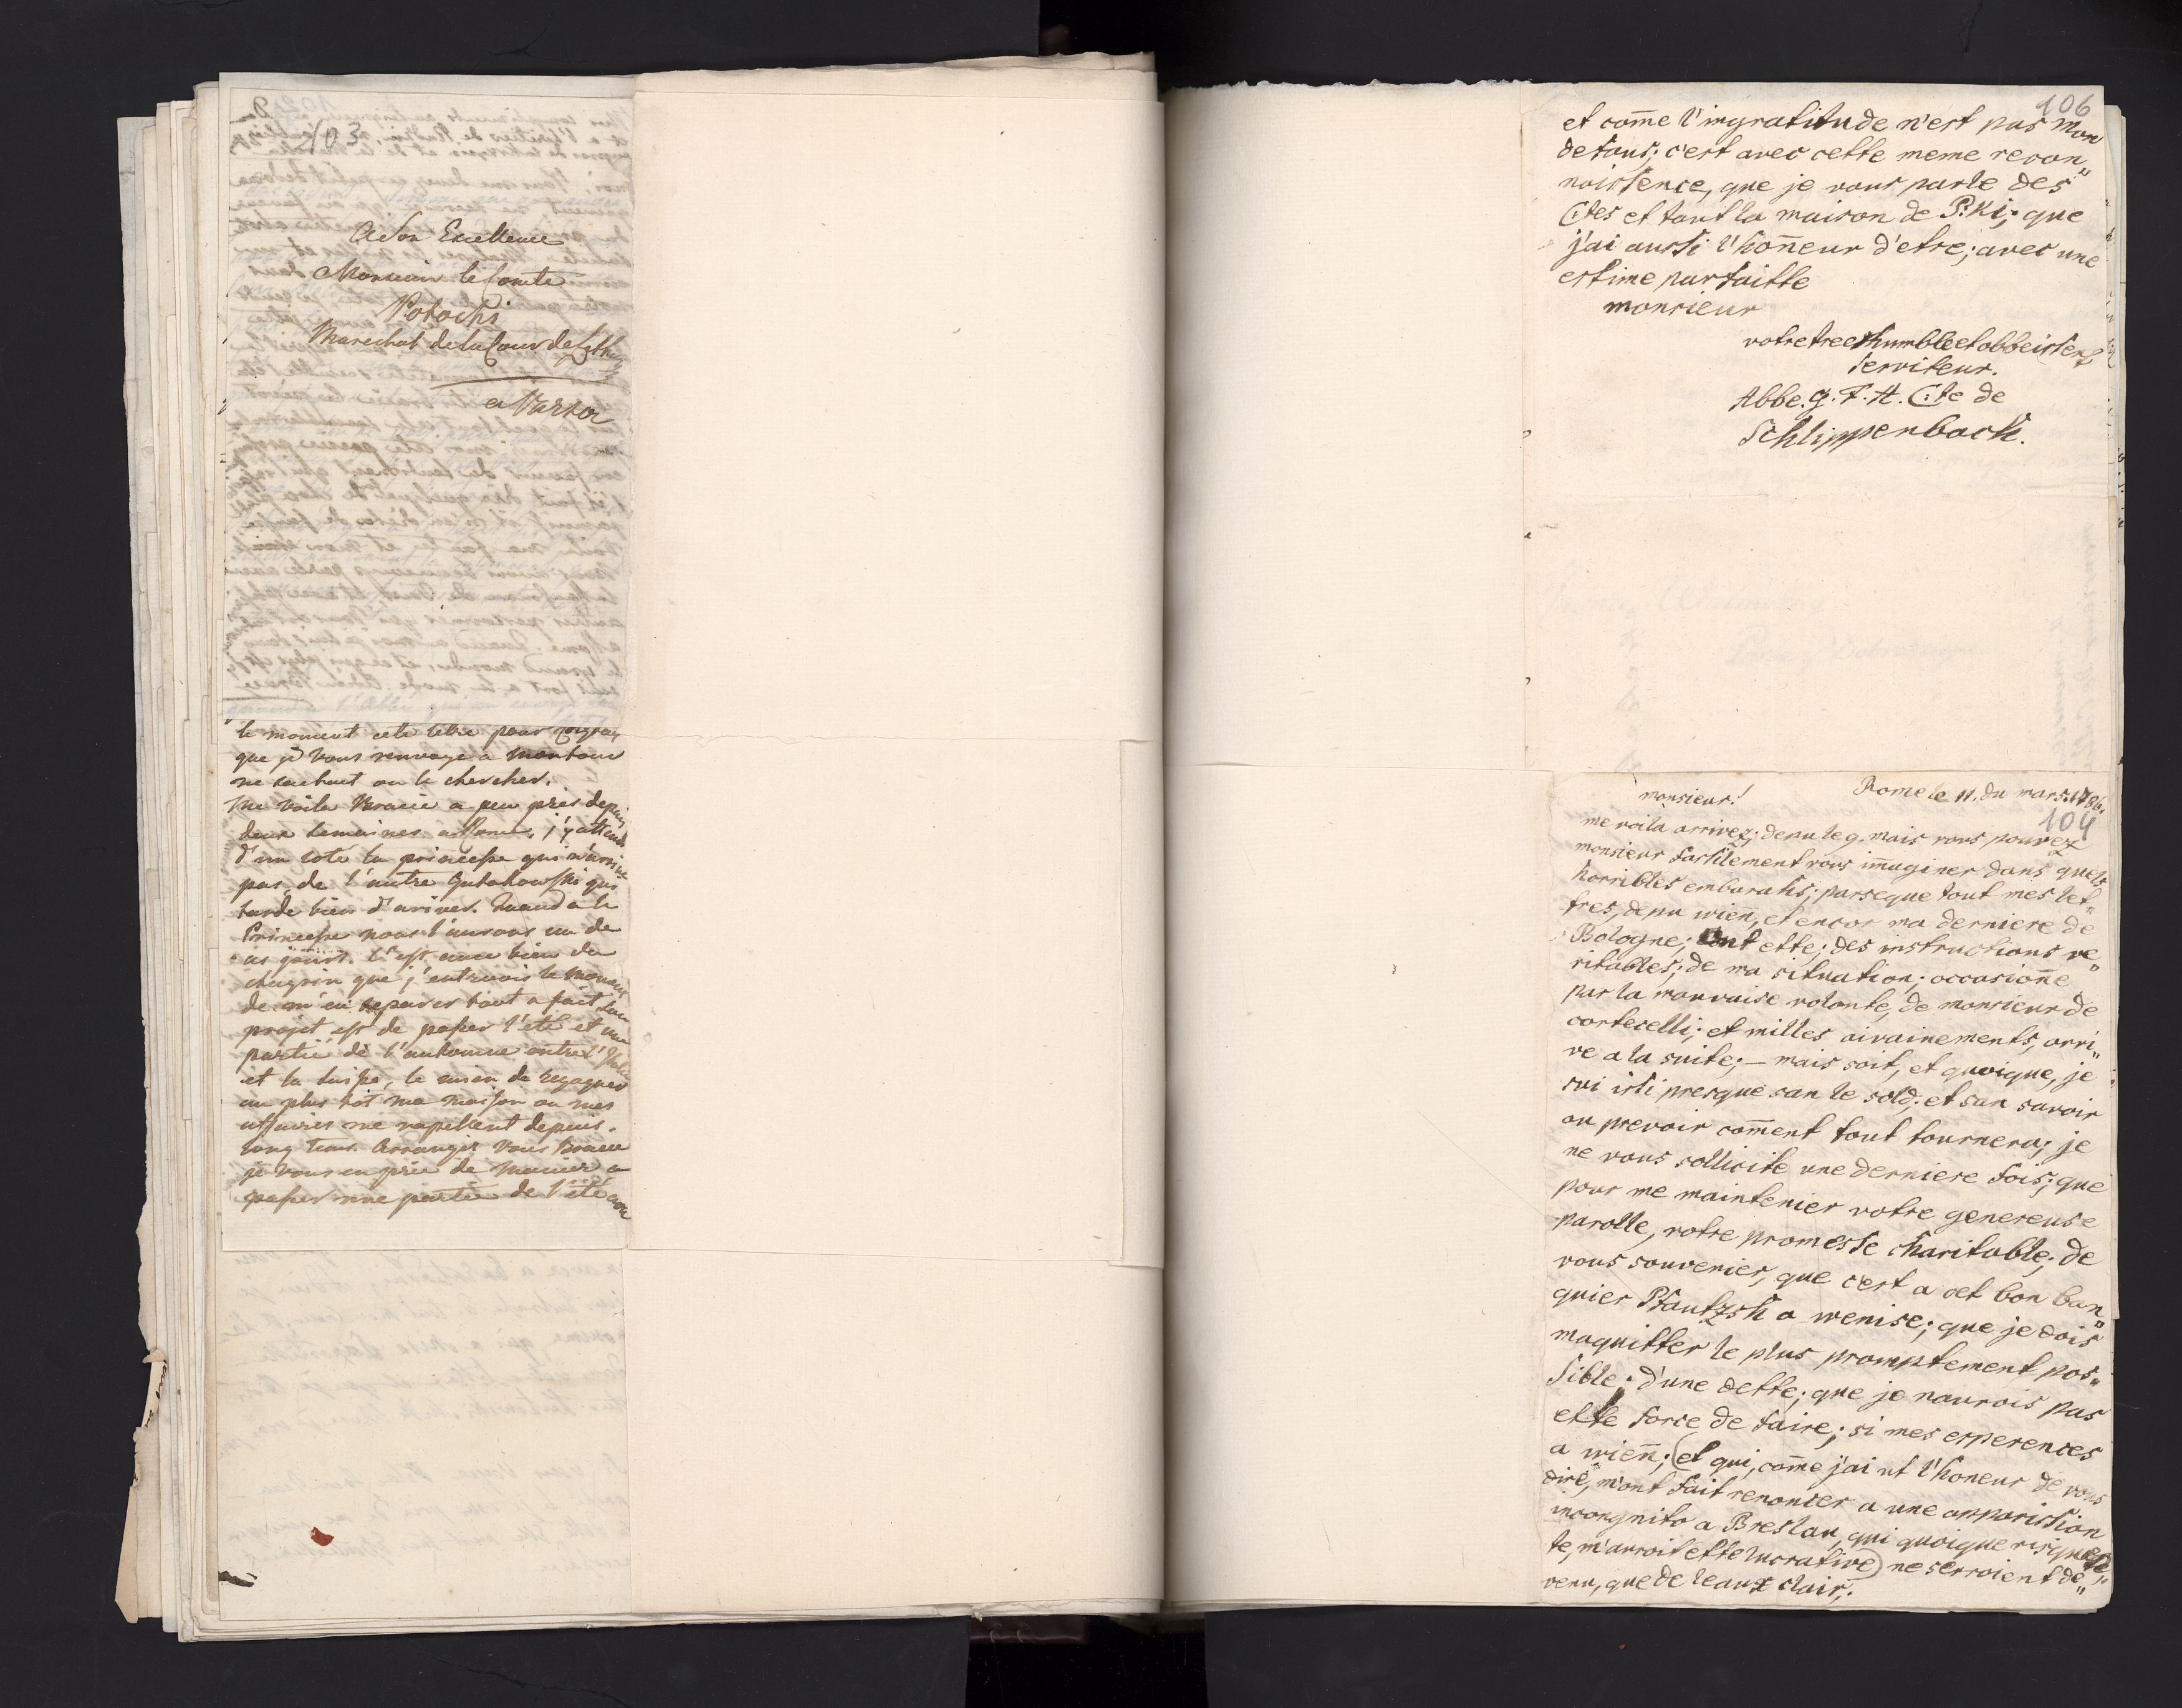 103
A Son Excellence
Monsieur le Comte
Potocki
Marechal de la Cour de Lith
a Varso
le moment cete letre pour
que je vous renvoye a montour
ne sachant ou le chercher.
Me voila Bracie a peu près depuis
deux semaines a Rome, j'y attends
d'un coté la princesse qui n'arrive
pas, de l'autre Gutakowski qui
tarde bien d'ariver. Quand a la
Princesse nous l'aurons un de
ces jours. C'est avec bien du
chagrin que j'entrevois le moment
de m'en separer tout a fait, son
projet est de passer l'eté et une
partie de l'automne entre l'Italie
et la Suisse, le mien de regagner
au plus tôt ma maison ou mes
affaires me rapellent depuis
long tems. Arrangés vous Bracie
je vous en prie de maniere a
passer une partie de l'eté avec
106
et comme l'ingratitude n'est pas mon
defaus; c'est avec cette meme recon„
noissence, que je vous parle des
C:tes et tout la maison de P:ki; que
j'ai aussi l'honneur d'etre; avec une
estime parfaitte
monsieur
votre trees humble et obbeissent
serviteur.
Abbe. g. F. A. C:te de
Schlippenbach.
Rome le 11. du mars. 1786.
monsieur!
104
me voila arrivez; depu le 9. mais vous pouvez
monsieur fassilement vous immaginer dans quels
horribles embarahs; parseque tout mes let„
tres, depu wienn, et encor ma derniere de
Bologne; ont ette; des instructions ve„
ritables; de ma situation; occasionne
par la mauvaise volonte, de monsieur de
cortecelli; et milles aivainements, arri„
ve a la suite; — mais soit, et quoique, je
sui issi presque san le sold; et san savoir
ou prevoir comment tout tournera; je
ne vous sollicite une derniere fois; que
pour me maintenier votre genereuse
parolle, votre promesse charitable; de
vous souvenier, que c'est a cet bon ban„
quier Pfautzsh a wenise; que je dois
maquitter le plus promptement pos„
sible; d'une dette; que je naurois pas
ette force de faire; si mes esperences
a wienn; (et qui, comme j'ai ut l'honeur de vous
dire, m'ont fait renoncer a une apparission
incongnito a Breslau, qui quoique risquee
te, m'auroit ette lucrative) ne serroient de„
venu, que de leaux clair;